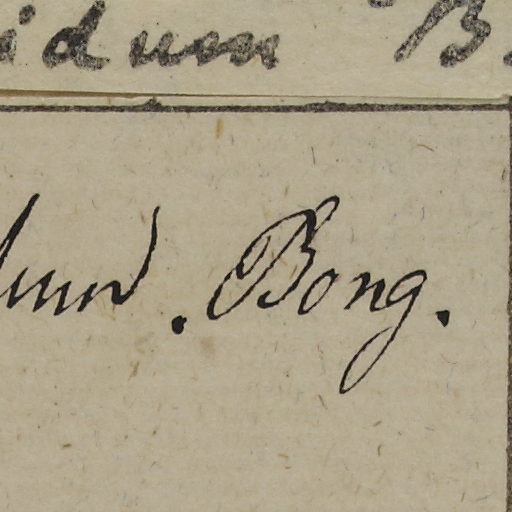 idum B.
. Bong.